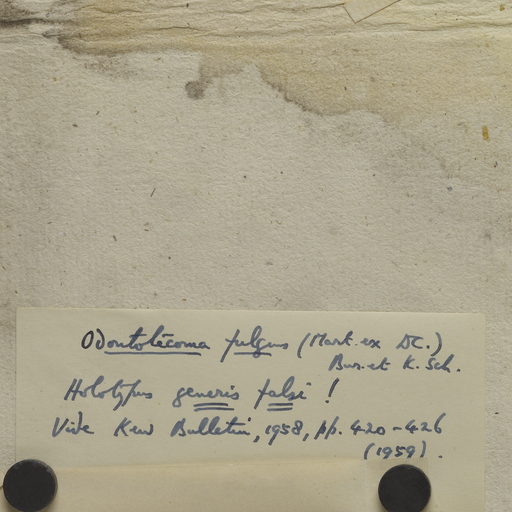 Odontotecoma fulgus (Mart. ex DC.)
Bur. et K. Sch.
Holotypus generis falsi !
Vide Kew Bulletin, 1958, pp. 420-426
(1959).